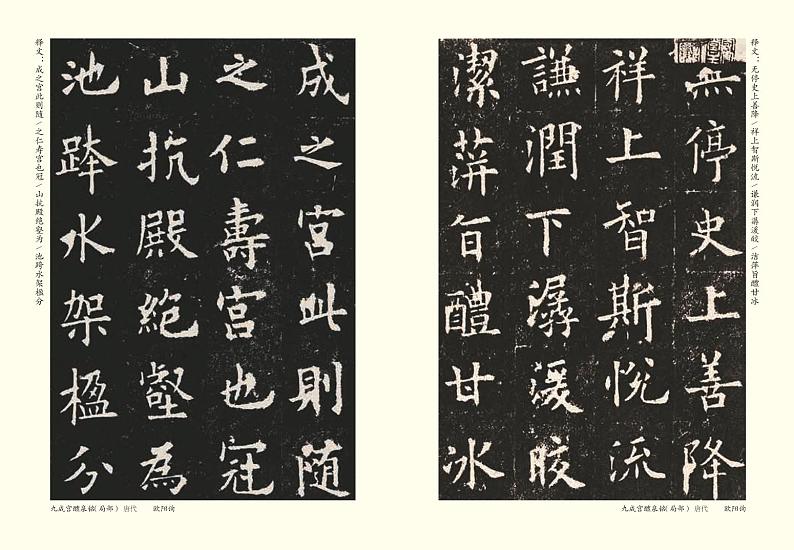 释文：成之宫此则随／之仁寿宫也冠／山抗殿绝壑为／池跨水架楹分
成之宮此則随
之仁壽宮也冠
山抗殿絶壑為
池跨水架楹分
九成宫醴泉铭(局部) 唐代 欧阳询
释文：无停史上善降／祥上智斯悦流／谦润下潺湲皎／洁萍旨醴甘冰
無停史上善降
祥上智斯悅流
謙潤下潺湲皎
潔蓱旨醴甘冰
九成宫醴泉铭(局部) 唐代 欧阳询